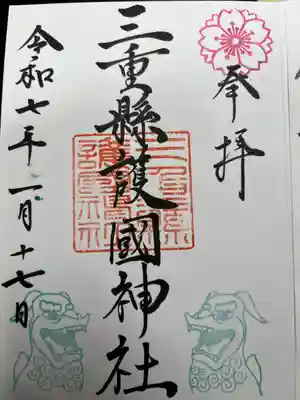 奉拝
三重縣護國神社
令和七年一月十七日